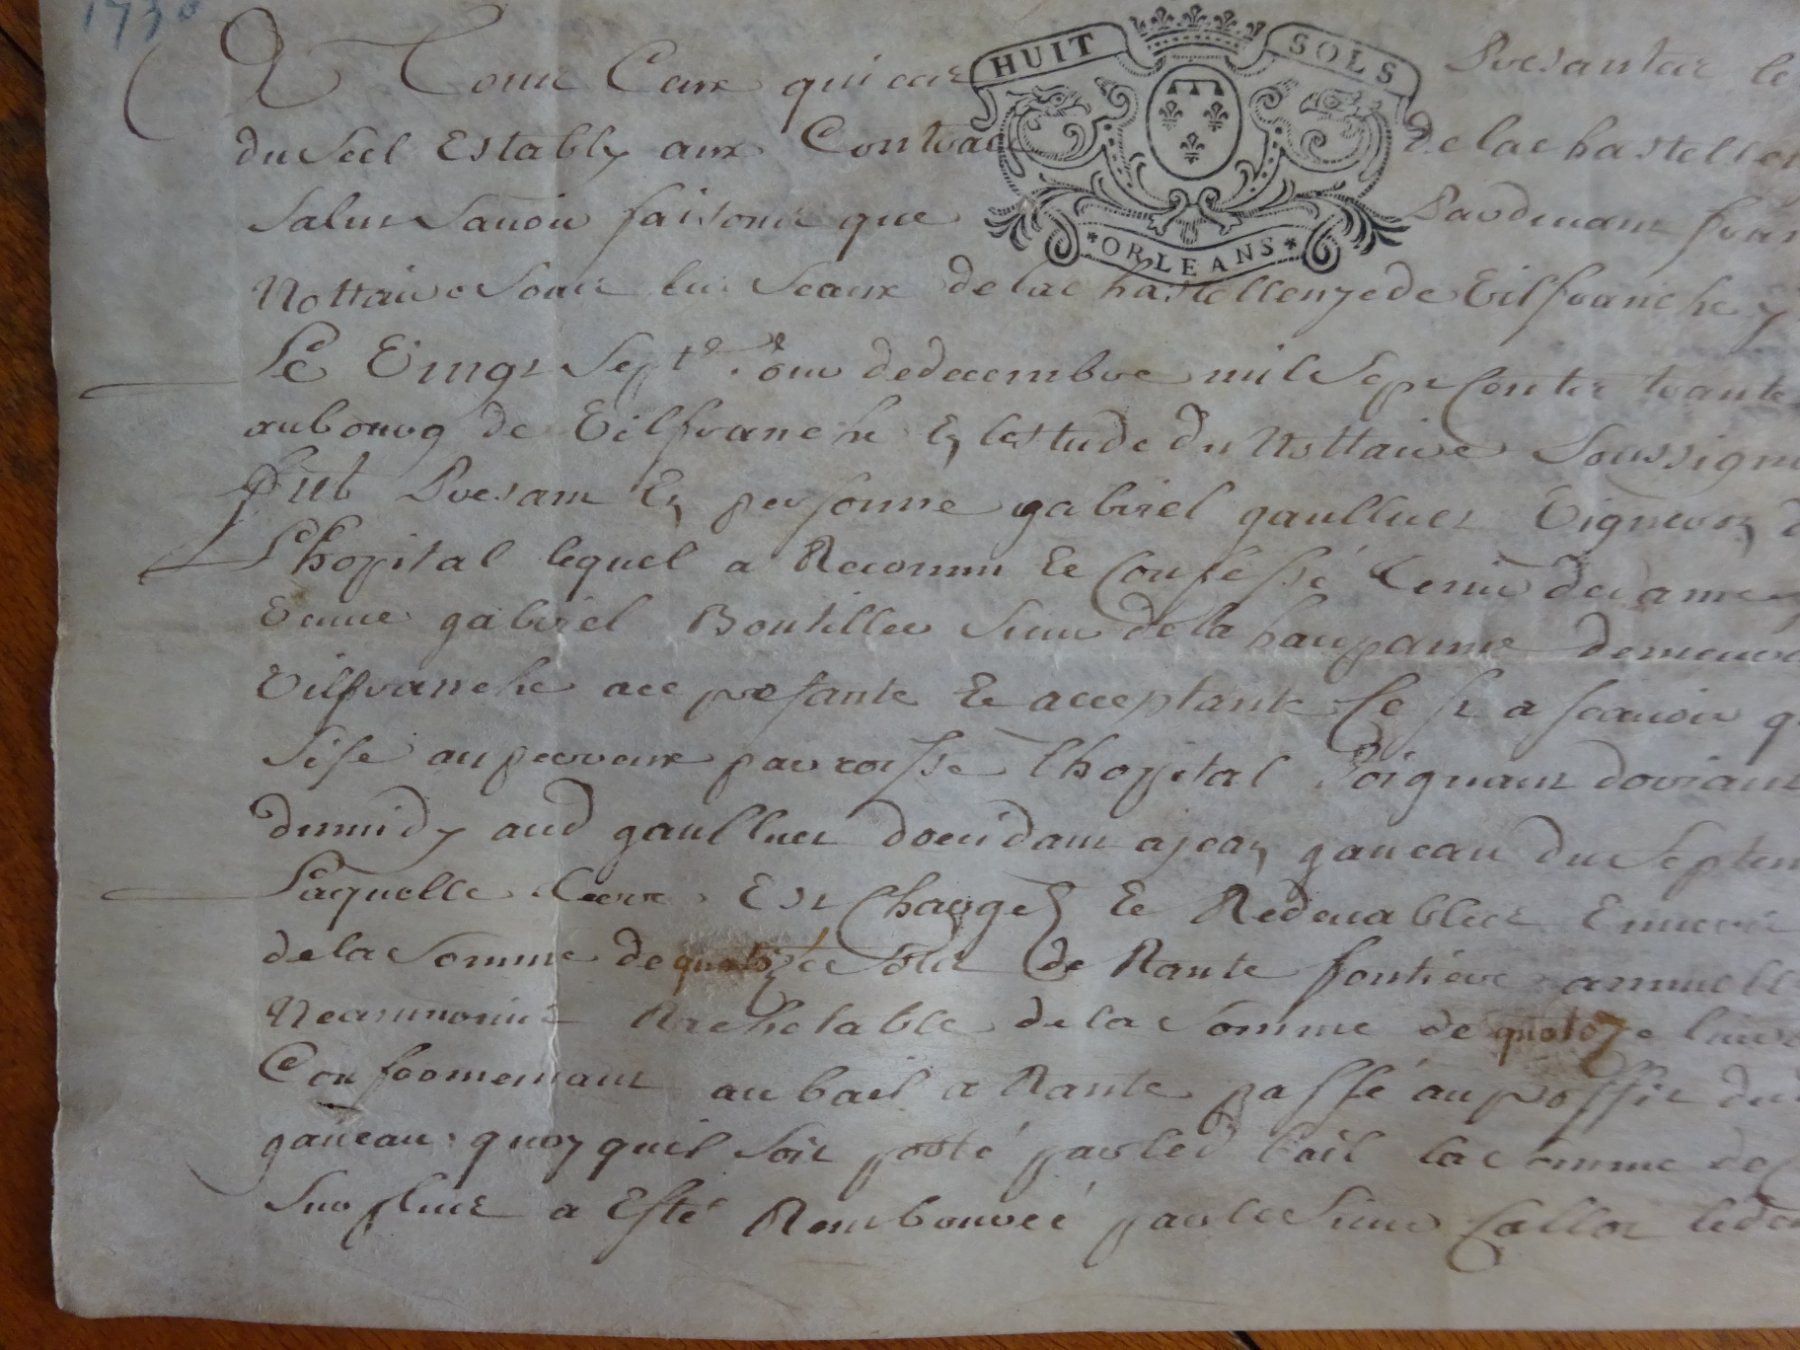 1730
HUIT SOLS
A Tous Ceux qui ces Presantes le
du Seel Estably aux Contrac delachastellen
Salut Sauoir faisons que Pardeuant fran
ORLEANS
Nottaire Sous les Seaux delachastellenye de Vilfranche
Le Vingt Sept.e Jour dedecembre mil Sept Cents trante
aubourg de Vilfranche En Lestude du Nottaire Soussigne
fut Presant En personne gabriel gaulluet Vigneron d
Lhopital lequel a Reconnu Et Confessé tenir de
Veuue gabriel Boutillee Sieur dela demeura
Vilfranche ace presante Et acceptante Cest a scauoir q
Sise auperreux parroisse lhopital Joignant doriant
dumidy aud gaulluet doccidant ajean ganeau du Septen
Laquelle Est Charge Et Redeuables Enuers
dela Somme de quatorze Sols de Rante fontiere annuell
Neanmoins Rachetable dela Somme de quatorze liures
Conformemant au bail a Rante passé au proffit du
ganeau quoy quil soit porté parled bail la Somme de
Surplus a Esté Rembourcé parle Sieur Callot led